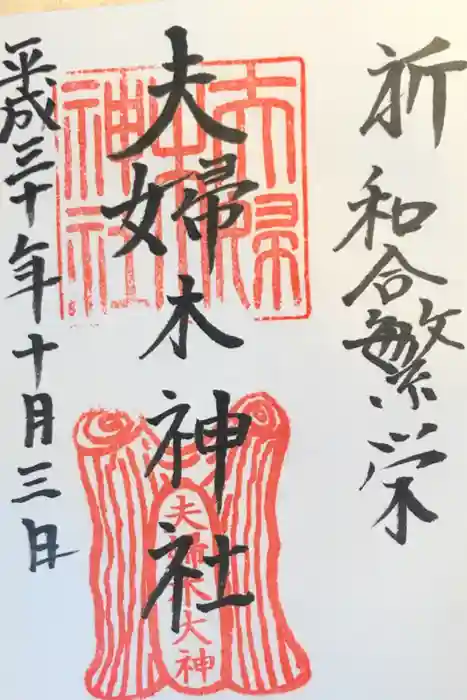 祈和合繁栄
夫婦木神社
平成三十年十月三日
夫婦木神社
夫婦木大神